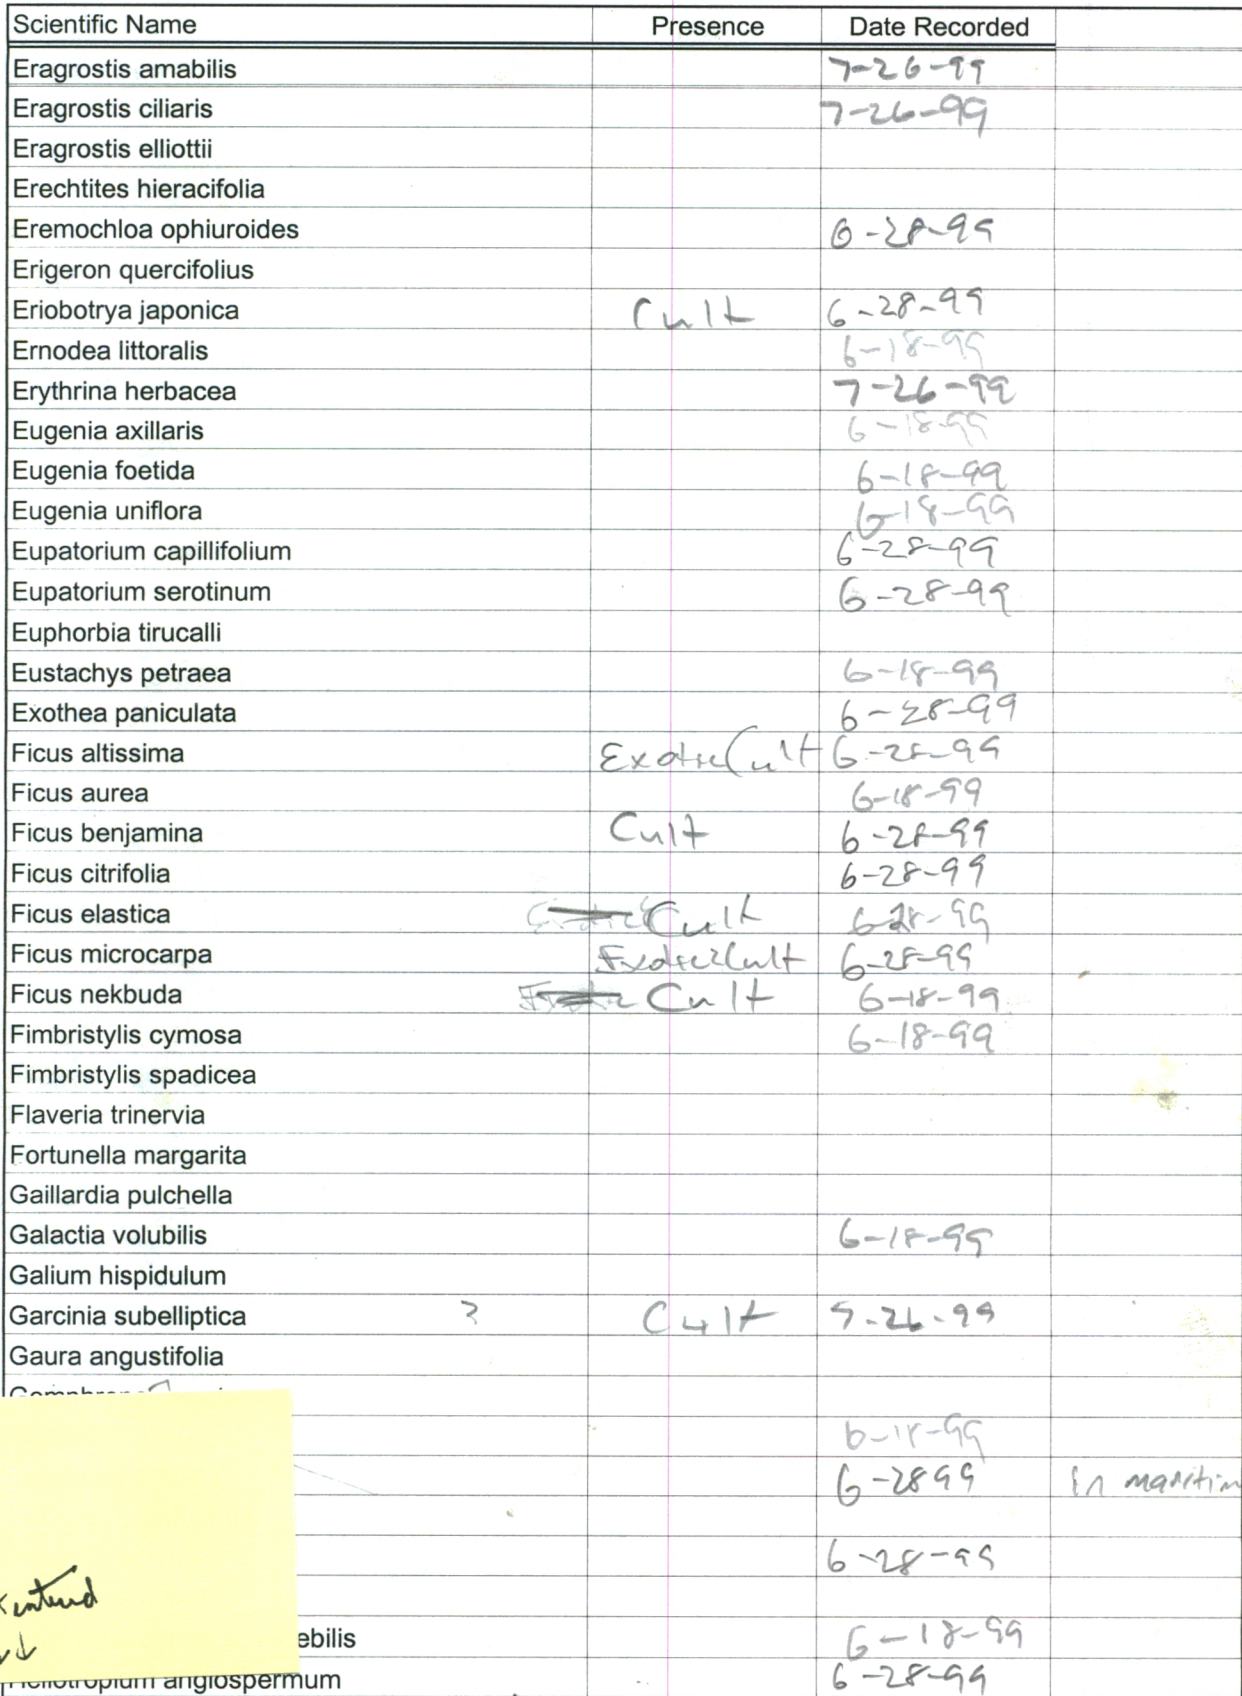 Scientific Name Presence Date Recorded
Eragrostis amabilis 7-26-99
Eragrostis ciliaris 7-26-99
Eragrostis elliottii
Erechtites hieracifolia
Eremochloa ophiuroides 6-28-99
Erigeron quercifolius
Eriobotrya japonica Cult 6-28-99
Ernodea littoralis 6-18-99
Erythrina herbacea 7-26-99
Eugenia axillaris 6-18-99
Eugenia foetida 6-18-99
Eugenia uniflora 6-18-99
Eupatorium capillifolium 6-28-99
Eupatorium serotinum 6-28-99
Euphorbia tirucalli
Eustachys petraea 6-18-99
Exothea paniculata 6-28-99
Ficus altissima Exotic Cult 6-28-99
Ficus aurea 6-18-99
Ficus benjamina Cult 6-28-99
Ficus citrifolia 6-28-99
Ficus elastica Cult 6-28-99
Ficus microcarpa Exotic Cult 6-28-99
Ficus nekbuda Cult 6-18-99
Fimbristylis cymosa 6-18-99
Fimbristylis spadicea
Flaveria trinervia
Fortunella margarita
Gaillardia pulchella
Galactia volubilis 6-18-99
Galium hispidulum
Garcinia subelliptica ? Cult 7-26-99
Gaura angustifolia
6-18-99
6-2899 in maritim
6-28-99
entered
ebilis 6-18-99
Heliotropium angiospermum 6-28-99